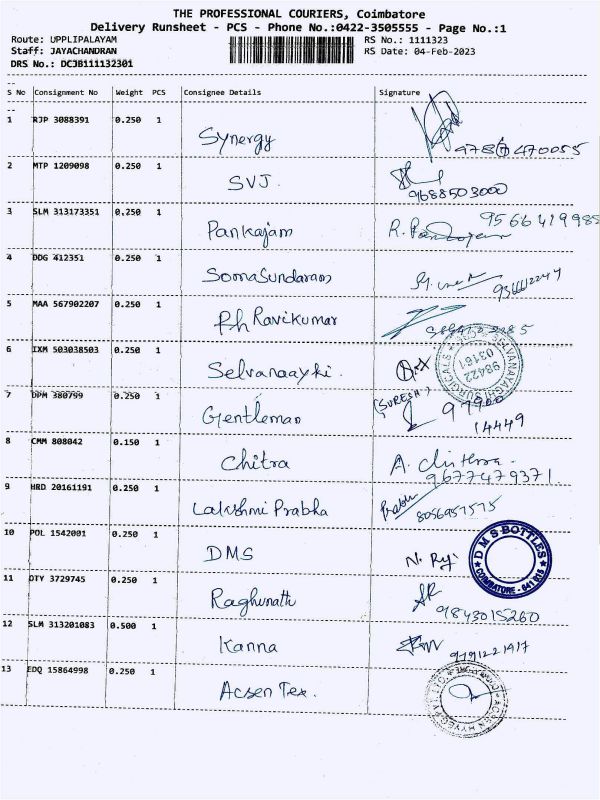 THE PROFESSIONAL COURIERS, Coimbatore
Delivery Runsheet - PCS - Phone No.:0422-3505555 - Page No.:1
Route: UPPLIPALAYAM RS No.: 1111323
Staff: JAYACHANDRAN RS Date: 04-Feb-2023
DRS No.: DCJB111132301
S No Consignment No Weight PCS Consignee Details Signature
1 RJP 3088391 0.250 1
Synergy
2 MTP 1209098 0.250 1
SVJ. 9688503000
3 SLM 313173351 0.250 1
Pankajam R. 9566419985
4 DDG 412351 0.250 1
SomaSundaram
5 MAA 567902207 0.250 1
Ph Ravikumar
6 IXM 503038503 0.250 1
Selvanaayki. 98422 03161
7 DPM 380799 0.250 1
Gentleman (SURESH) 97900
14449
8 CMM 808042 0.150 1
Chitra A.
9677479371.
9 HRD 20161191 0.250 1
Lakshmi Prabha Prabhu 8056951515
10 POL 1542001 0.250 1
DMS N. DMS BOTTLES COIMBATORE - 641 015
11 OTY 3729745 0.250 1
Raghunath 9843015260
12 SLM 313201083 0.500 1
Kanna 9191221917
13 EDQ 15864998 0.250 1
Acsen Tex.